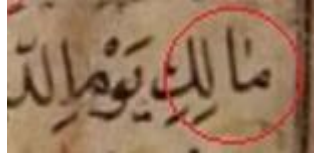 مَالِكِ يَوْمِ الدِّ